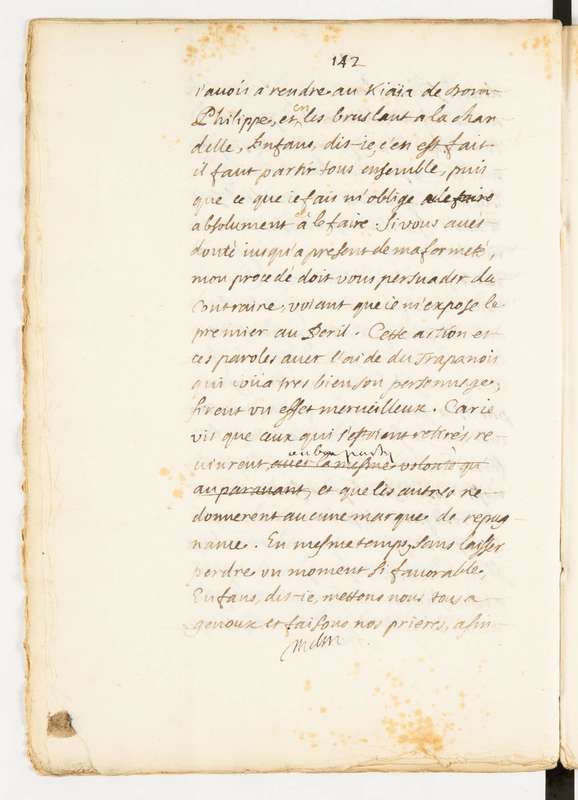 142
i'avois a rendre au Kiaïa de
Philippe, et en les bruslant a la chan
delle, Enfans, dis-ie, c'en est fait
il faut partir tous ensemble, puis
que ce que ie fais m'oblige a le faire
absolument a le faire. Si vous aués
douté iusqu'a present de ma fermeté,
mon procedé doit vous persuader du
Contraire, voiant que ie m'expose le
premier au Peril. Cette action et
ces paroles auec l'aide du Trapanois
qui ioüa tres bien son personnage,
firent vn effet merueilleux. Car ie
vis que ceux qui s'estoient retirés, re
au bon party
uinrent auec la mesme volonté qu'
auparauant, et que les autres ne
donnerent aucune marque de repug
nance. En mesme temps, sans laisser
perdre vn moment si fauorable,
Enfans, dis-ie, mettons nous tous a
genoux et faisons nos prieres, afin